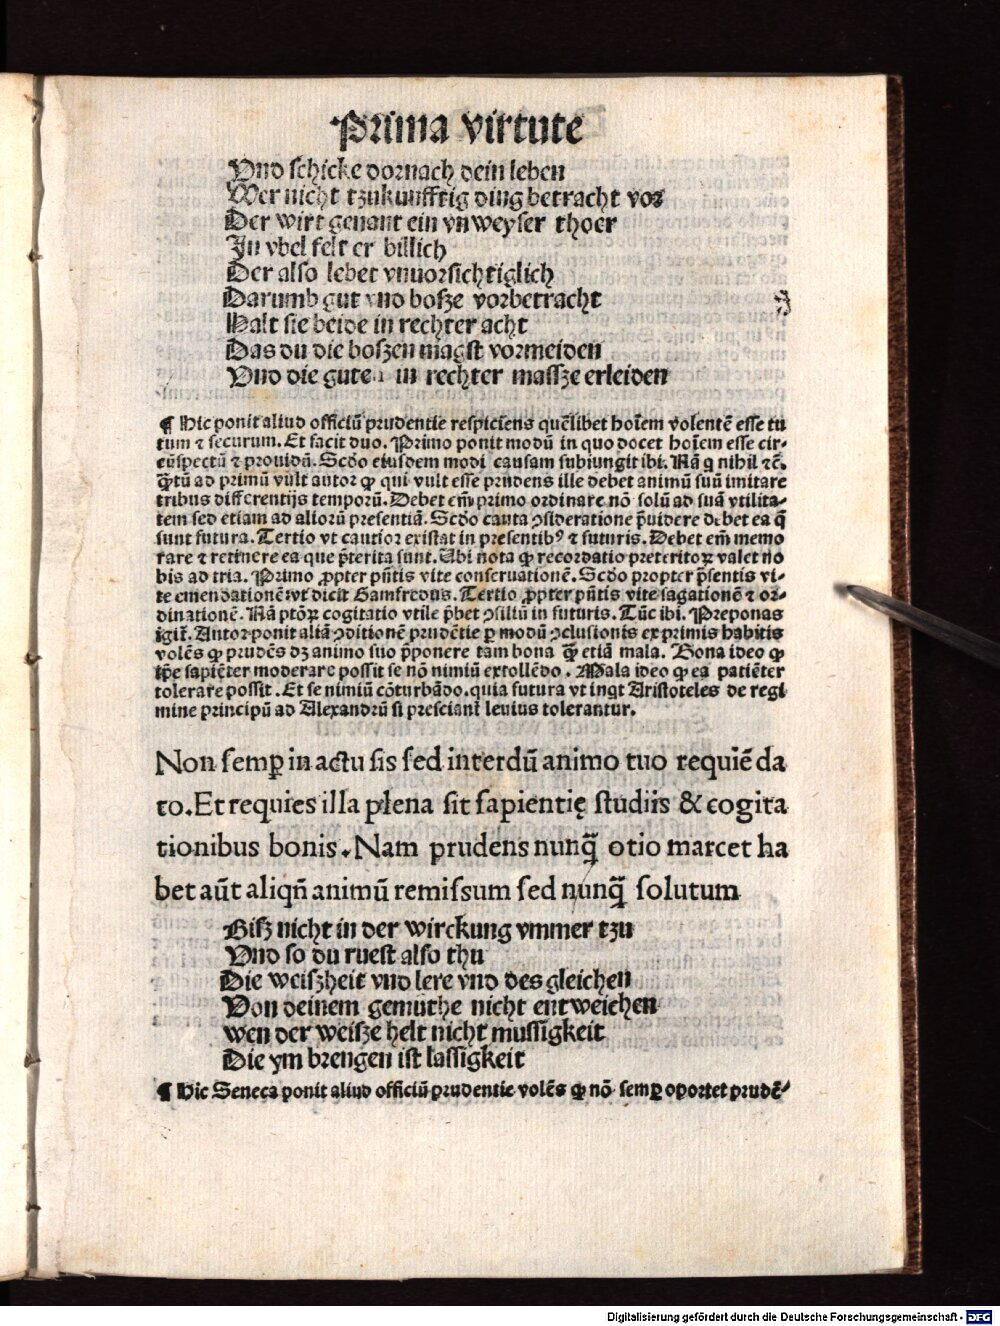 Prima virtute
Vnd schicke dornach dein leben
Wer nicht tzukunfftig ding betracht vor
Der wirt genant ein vnweyser thoer
In vbel felt er billich
Der also lebet vnuorsichtiglich
Darumb gut vnd bosze vorbetracht
Halt sie beide in rechter acht
Das du die boszen magst vormeiden
Vnd die gute in rechter massze erleiden
¶ Hic ponit aliud officiū prudentie respiciens quēlibet hoīem volentē esse tu
tum ⁊ securum. Et facit duo. Primo ponit modū in quo docet hoīem esse cir-
cūspectū ⁊ prouidū. Scđo eiusdem modi causam subiungit ibi. Nā q nihil ⁊č.
Q̄tū ad primū vult autor ꝙ qui vult esse prudens ille debet animū suū imitare
tribus differentijs temporū. Debet em̄ primo ordinare nō solū ad suā vtilita-
tem sed etiam ad aliorū presentiā. Scđo cauta ꝯsideratione p̄uidere debet ea q̄
sunt futura. Tertio vt cautior existat in presentibꝰ ⁊ futuris. Debet em̄ memo
rare ⁊ retinere ea que p̄terita sunt. Vbi nota ꝙ recordatio preteritoꝝ valet no
bis ad tria. Primo ꝓpter pn̄tis vite conseruationē. Scđo propter p̄sentis vi-
te emendationē vt dicit Gamfredus. Tertio ꝓpter pn̄tis vite sagationē ⁊ or-
dinationē. Nā ptōꝝ cogitatio vtile p̄bet ꝯsiliū in futuris. Tūc ibi. Preponas
igit̄. Autor ponit aliā ꝯditionē prudētie ꝑ modū ꝯclusionis ex primis habitis
volēs ꝙ prudēs dꝫ animo suo p̄ponere tam bona q̄ꝫ etiā mala. Bona ideo ꝙ
ip̄e sapiēter moderare possit se nō nimiū extollēdo. Mala ideo ꝙ ea patiēter
tolerare possit. Et se nimiū cōturbādo. quia futura vt inqt Aristoteles de regi
mine principū ad Alexandrū si presciant̄ leuius tolerantur.
Non semꝑ in actu sis sed interdū animo tuo requiē da
to. Et requies illa plena sit sapientię studiis & cogita
tionibus bonis. Nam prudens nunq̄ otio marcet ha
bet aūt aliqn̄ animū remissum sed nunq̄ solutum
Bisz nicht in der wirckung ymmer tzu
Vnd so du ruest also thu
Die weiszheit vnd lere vnd des gleichen
Von deinem gemuthe nicht entweichen
wen der weisze helt nicht mussigkeit
Die ym brengen ist lassigkeit
¶ Hic Seneca ponit aliud officiū prudentie volēs ꝙ nō semꝑ oportet prudē-
Digitalisierung gefördert durch die Deutsche Forschungsgemeinschaft - DFG